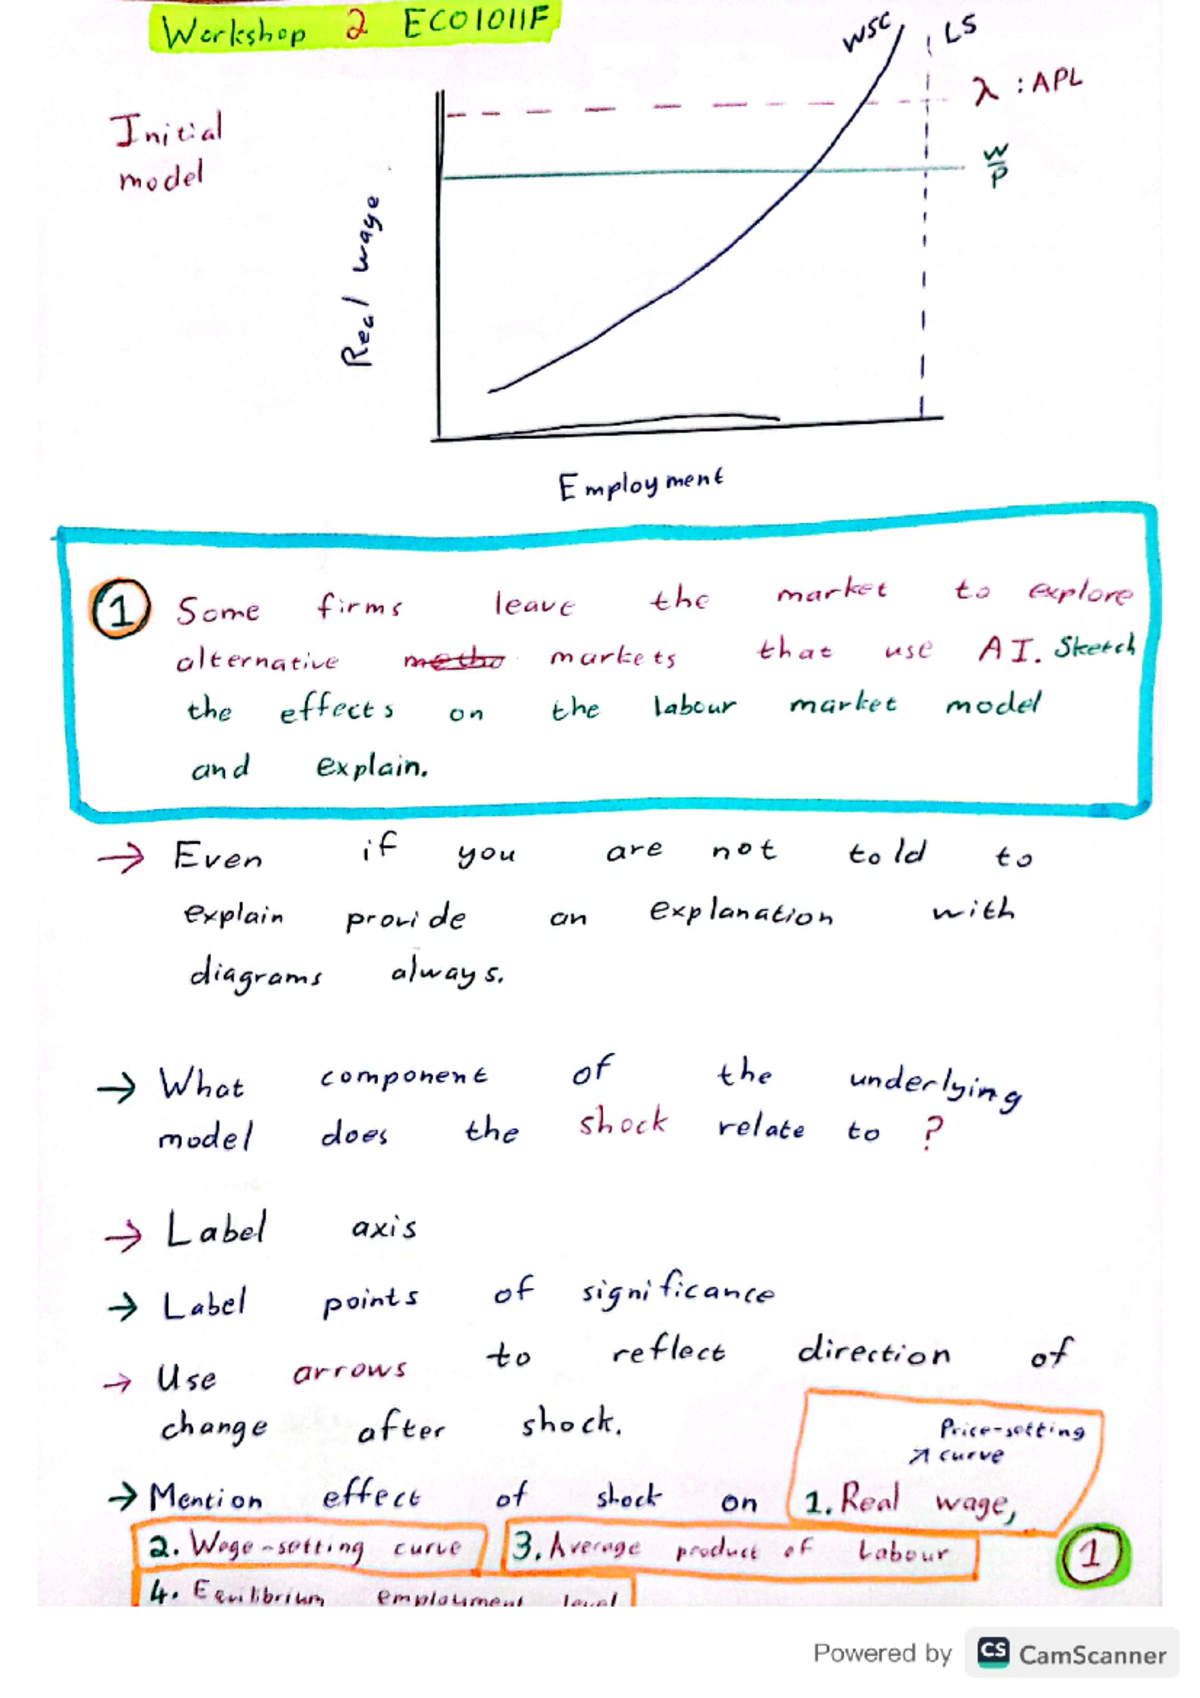 Workshop 2 ECO1011F
WSC
LS
λ : APL
Initial
model
W
P
Real wage
Employment
1 Some firms leave the market to explore
alternative metho markets that use AI. Sketch
the effects on the labour market model
and explain.
→ Even if you are not told to
explain provide an explanation with
diagrams always.
→ What component of the underlying
model does the shock relate to ?
→ Label axis
→ Label points of significance
→ Use arrows to reflect direction of
change after shock.
Price-setting
↗ curve
→ Mention effect of shock on 1. Real wage,
2. Wage-setting curve 3. Average product of Labour
1
4. Equilibrium employment level
Powered by CS CamScanner